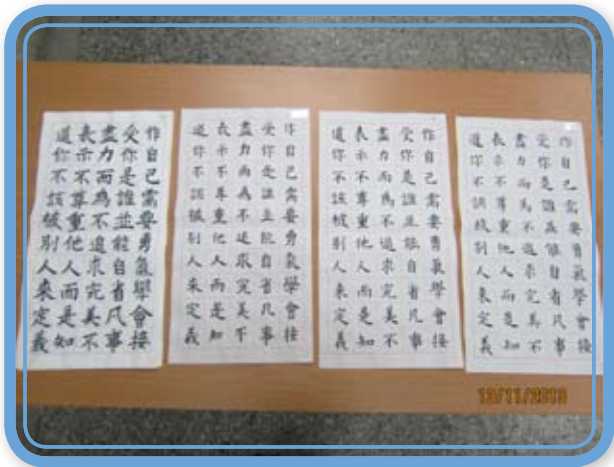 作自己需要勇氣學會接
受你是誰並能自省凡事
盡力而為不追求完美不
表示不尊重他人而是知
道你不該被別人來定義
作自己需要勇氣學會接
受你是誰並能自省凡事
盡力而為不追求完美不
表示不尊重他人而是知
道你不該被別人來定義
作自己需要勇氣學會接
受你是誰並能自省凡事
盡力而為不追求完美不
表示不尊重他人而是知
道你不該被別人來定義
作自己需要勇氣學會接
受你是誰並能自省凡事
盡力而為不追求完美不
表示不尊重他人而是知
道你不該被別人來定義